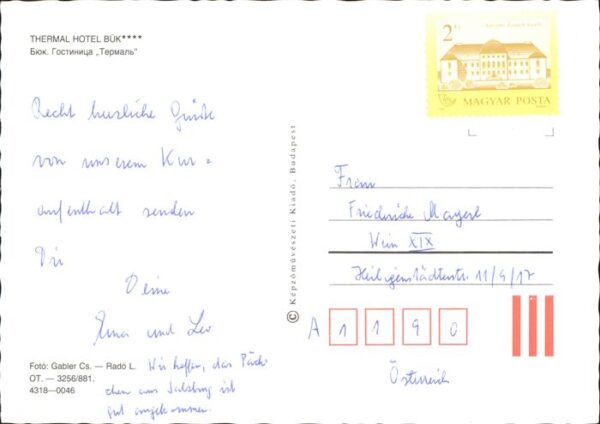 THERMAL HOTEL BÜK****
Бюк. Гостиница „Термаль"
2Ft
MAGYAR POSTA
Recht herzliche Grüße
von unserem Kur=
aufenthalt senden
Dir
Deine
und Leo
Wir hoffen, das Päck
chen aus Salzburg ist
gut angekommen.
Fotó: Gabler Cs. — Radó L.
OT. — 3256/881.
4318—0046
© Képzőművészeti Kiadó, Budapest
Frau
Friederike
Wien XIX
Heiligenstädterstr. 11/9/17
A 1190
Österreich